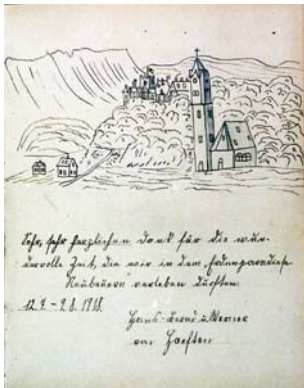 Sehr, sehr herzlichen Dank für die wun-
dervolle Zeit, die wir in dem
Neubeuern verleben durften.
12.7. - 9.8.1918.
Hans-Bernd u. Werner
von Haeften